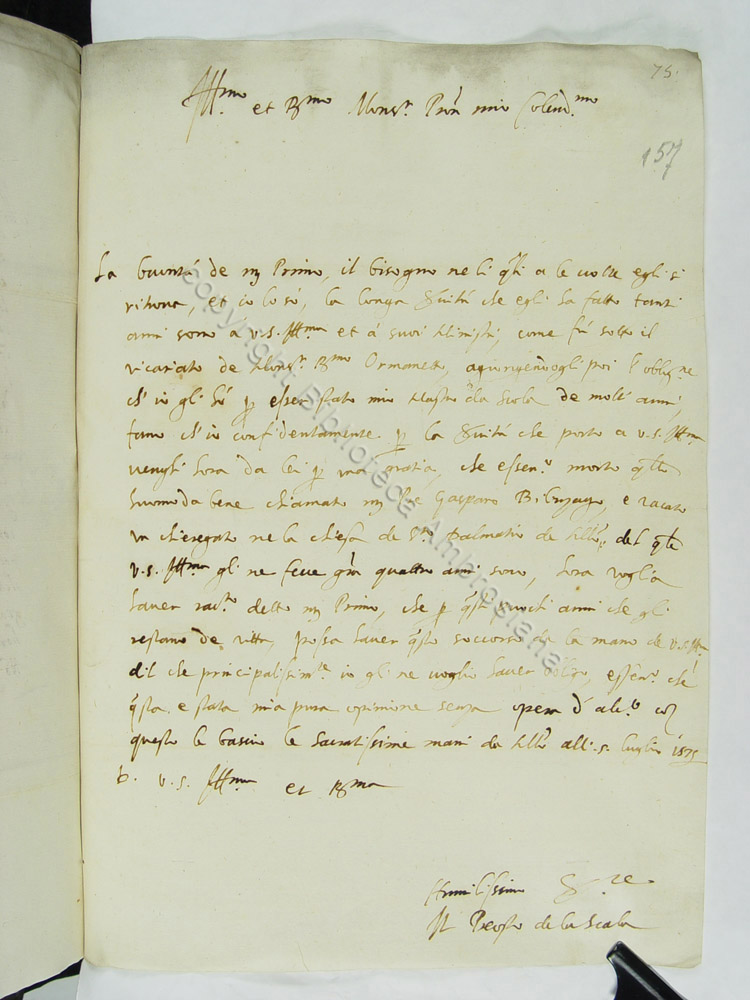 75.
Ill.mo et R.mo Mons.r Pron mio Colend.mo
157
La bontà de m Primo, il bisogno ne li q.li a le volte egli si
ritrova, et io lo sò, la longa s.vitù che egli ha fatto tanti
anni sono à V.S. Ill.ma et à suoi Ministri, come fù sotto il
vicariato de Mons.r R.mo Ormaneto, agiungendogli poi l'oblig.ne
ch'io gli hò p esser stato mio Mastro d.la Scola de molti anni,
fano ch'io confidentamente p la s.vitù che porto a V.S. Ill.ma
venghi hora da lei p una gratia, che essen.o morto q.llo
huomo da bene chiamato m Pre Gasparo, e vacato
un chiericato ne la chiesa de S.to Palmatio de Mlo, del q.le
V.S. Ill.ma gli ne fece gra quattro ani sono, hora voglia
haver detto m Primo, che p q.sti puochi anni che gli
restano de vitta, possa haver q.sto soccorso da la mano de V.S. Ill.ma
dil che principalissim.te io gli ne voglio haver obligo, essen.o che
q.sta e stata mia pura opinione senza opera d' alc.o co
questo le bascio le sacratissime mani da Mlo alli .5. luglio 1575
D. V.S. Ill.ma et R.ma
Humilissimo S.re
Il Preosto de la Scala
copyright Biblioteca Ambrosiana